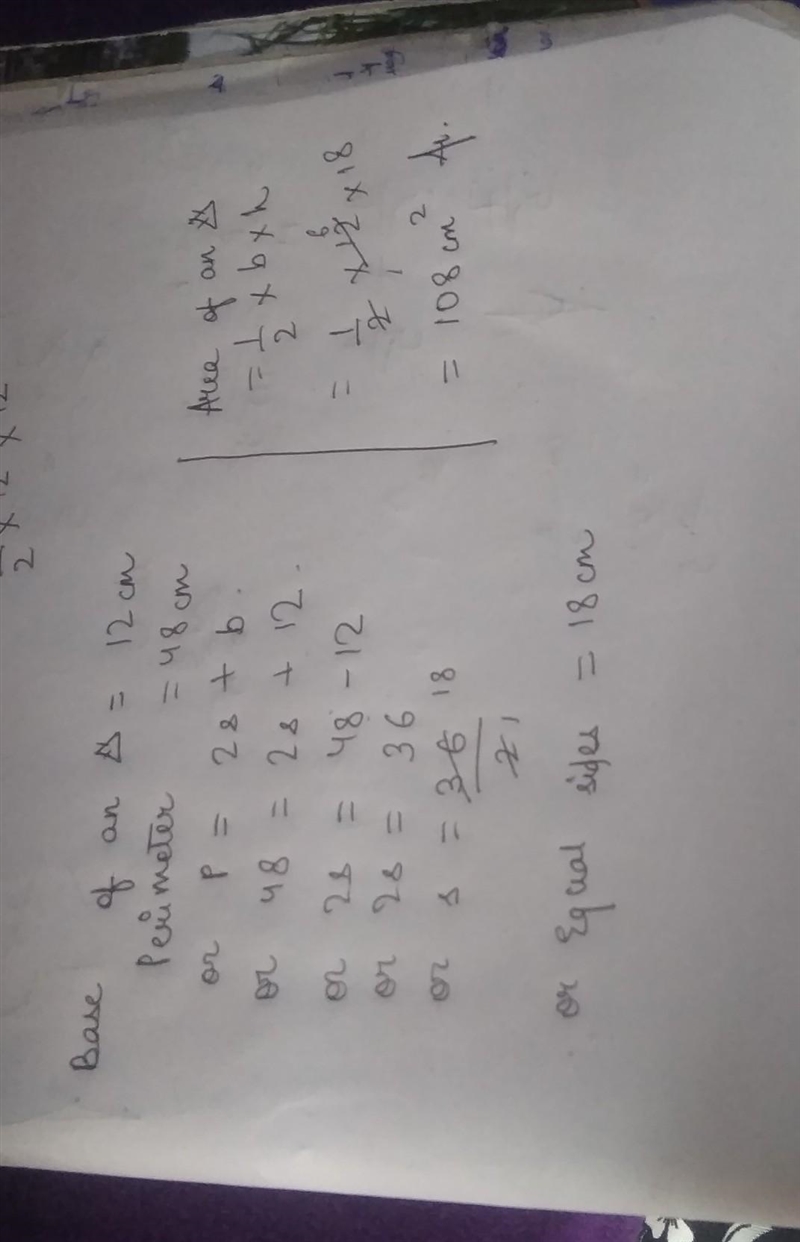 2 × 12 × 12
Base of an Δ = 12 cm
Perimeter = 48 cm
or P = 2s + b.
or 48 = 2s + 12.
or 2s = 48 - 12
or 2s = 36
or s = 36 18
2 1
or Equal sides = 18 cm
Area of an Δ
= 1/2 × b × h
= 1/2 × 12 × 18
6
1
= 108 cm²